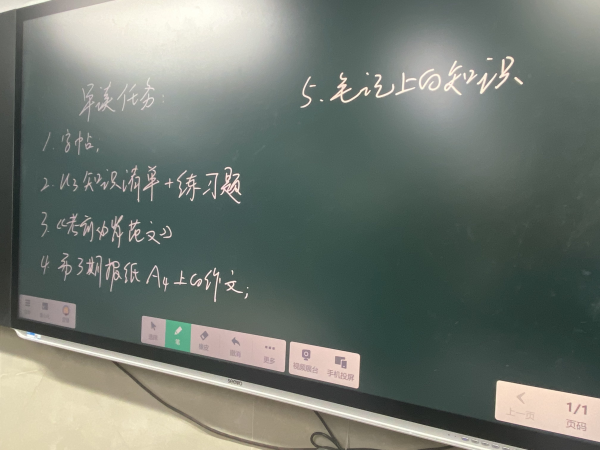 早读任务:
1. 字帖;
2. U3 知识清单+练习题
3. 《考前 范文》
4. 第3期报纸 A4上的作文;
5. 笔记上的知识
更多
视频展台
手机投屏
上一页
1/1
页码